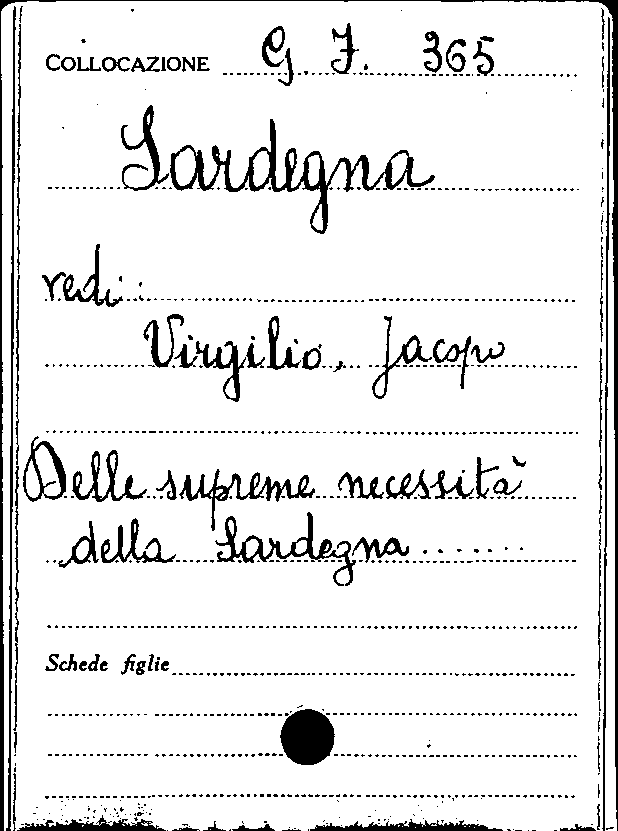 COLLOCAZIONE G. F. 365
Sardegna
vedi:
Virgilio, Jacopo
Delle supreme necessità
della Sardegna.......
Schede figlie